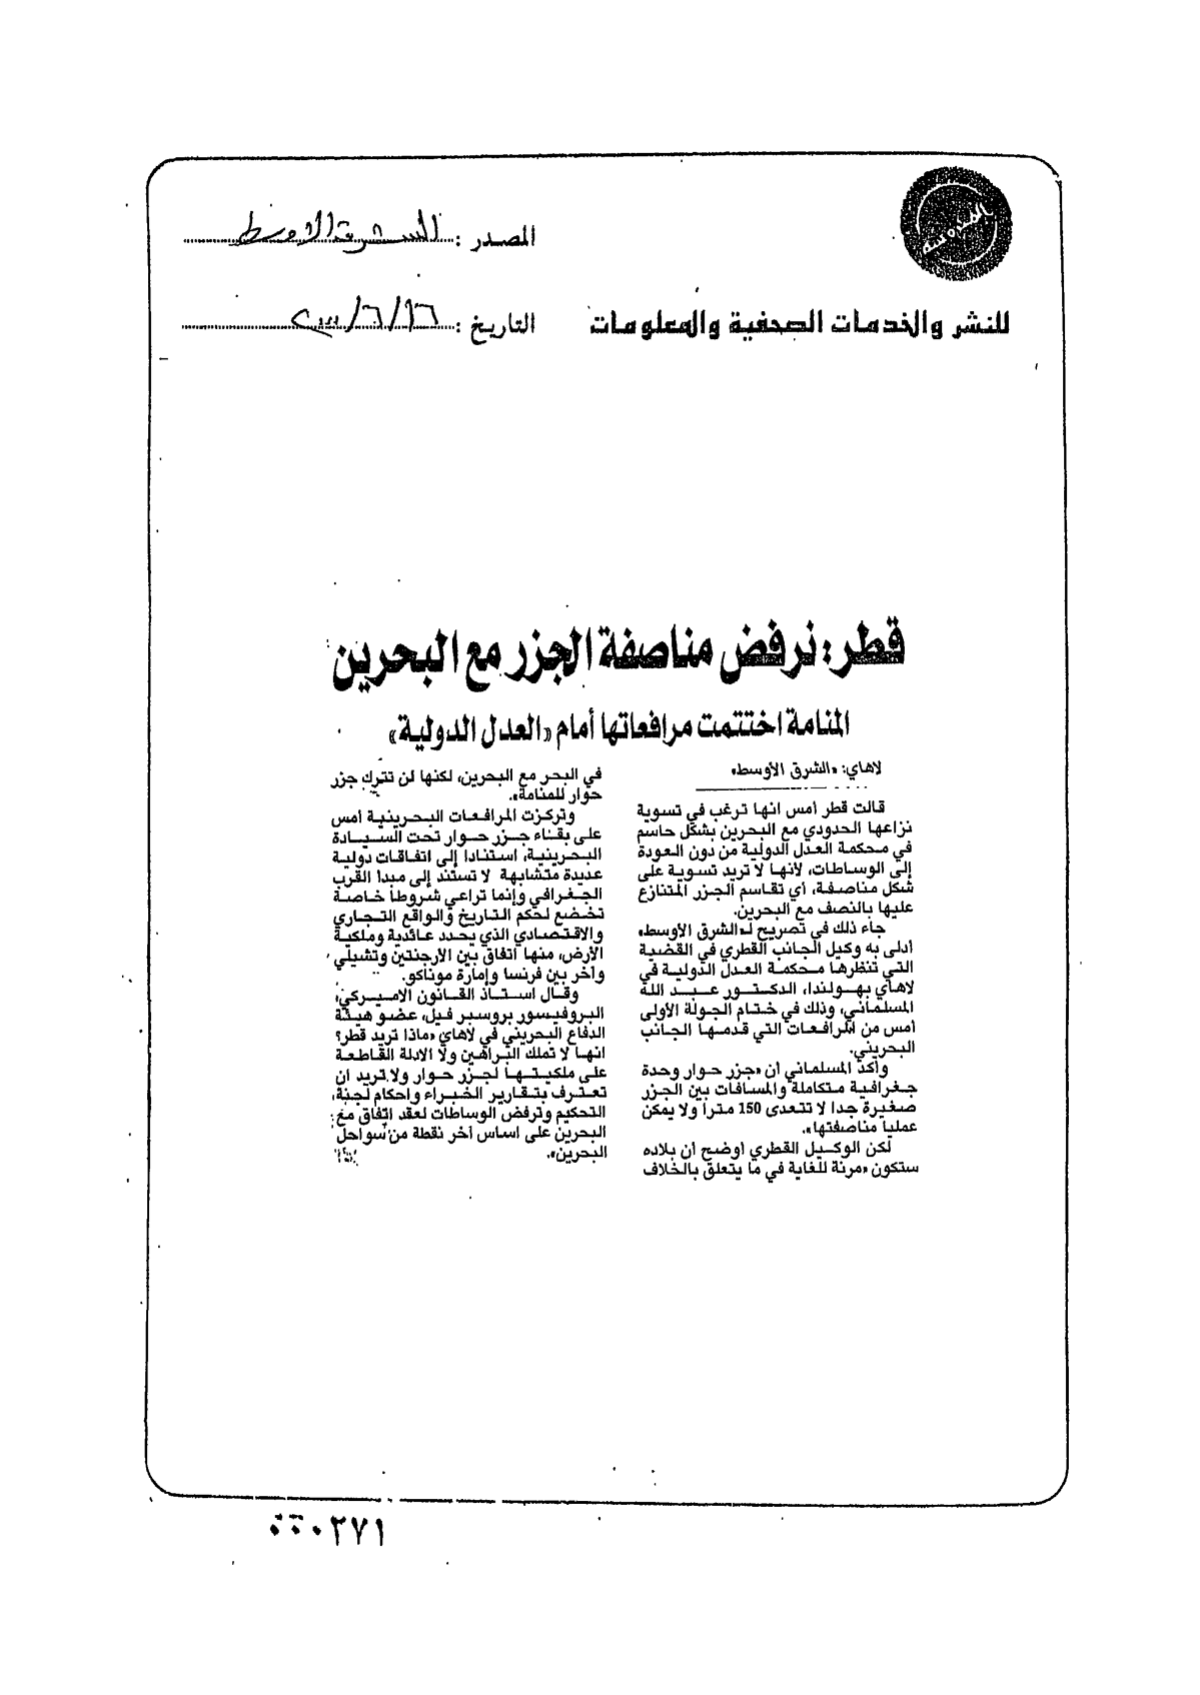 المحروسة
المصدر : الشرق الاوسط
للنشر والخدمات الصحفية والمعلومات
التاريخ : ١٦/٦/٢٠٠٠
قطر: نرفض مناصفة الجزر مع البحرين
المنامة اختتمت مرافعاتها أمام «العدل الدولية»
لاهاي: «الشرق الأوسط»
قالت قطر أمس انها ترغب في تسوية
نزاعها الحدودي مع البحرين بشكل حاسم
في محكمة العدل الدولية من دون العودة
إلى الوساطات، لأنها لا تريد تسوية على
شكل مناصفة، أي تقاسم الجزر المتنازع
عليها بالنصف مع البحرين.
جاء ذلك في تصريح لـ«الشرق الأوسط»
أدلى به وكيل الجانب القطري في القضية
التي تنظرها محكمة العدل الدولية في
لاهاي بهولندا، الدكتور عبد الله
المسلماني، وذلك في ختام الجولة الأولى
أمس من المرافعات التي قدمها الجانب
البحريني.
وأكد المسلماني أن «جزر حوار وحدة
جغرافية متكاملة والمسافات بين الجزر
صغيرة جدا لا تتعدى 150 مترا ولا يمكن
عمليا مناصفتها».
لكن الوكيل القطري أوضح أن بلاده
ستكون «مرنة للغاية في ما يتعلق بالخلاف
في البحر مع البحرين، لكنها لن تترك جزر
حوار للمنامة».
وتركزت المرافعات البحرينية أمس
على بقاء جزر حوار تحت السيادة
البحرينية، استنادا إلى اتفاقات دولية
عديدة متشابهة لا تستند إلى مبدأ القرب
الجغرافي وإنما تراعي شروطا خاصة
تخضع لحكم التاريخ والواقع التجاري
والاقتصادي الذي يحدد عائدية وملكية
الأرض، منها اتفاق بين الأرجنتين وتشيلي
وآخر بين فرنسا وإمارة موناكو.
وقال استاذ القانون الاميركي،
البروفيسور بروسبر فيل، عضو هيئة
الدفاع البحريني في لاهاي «ماذا تريد قطر؟
انها لا تملك البراهين ولا الادلة القاطعة
على ملكيتها لجزر حوار ولا تريد ان
تعترف بتقارير الخبراء واحكام لجنة
التحكيم وترفض الوساطات لعقد اتفاق مع
البحرين على اساس آخر نقطة من سواحل
البحرين».
٢٧١